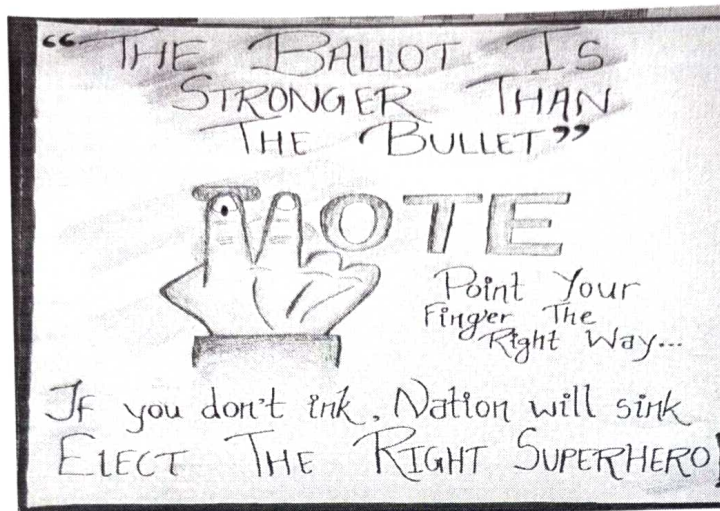 “THE BALLOT IS
STRONGER THAN
THE BULLET”
VOTE
Point Your
Finger The
Right Way...
If you don't ink, Nation will sink
ELECT THE RIGHT SUPERHERO!